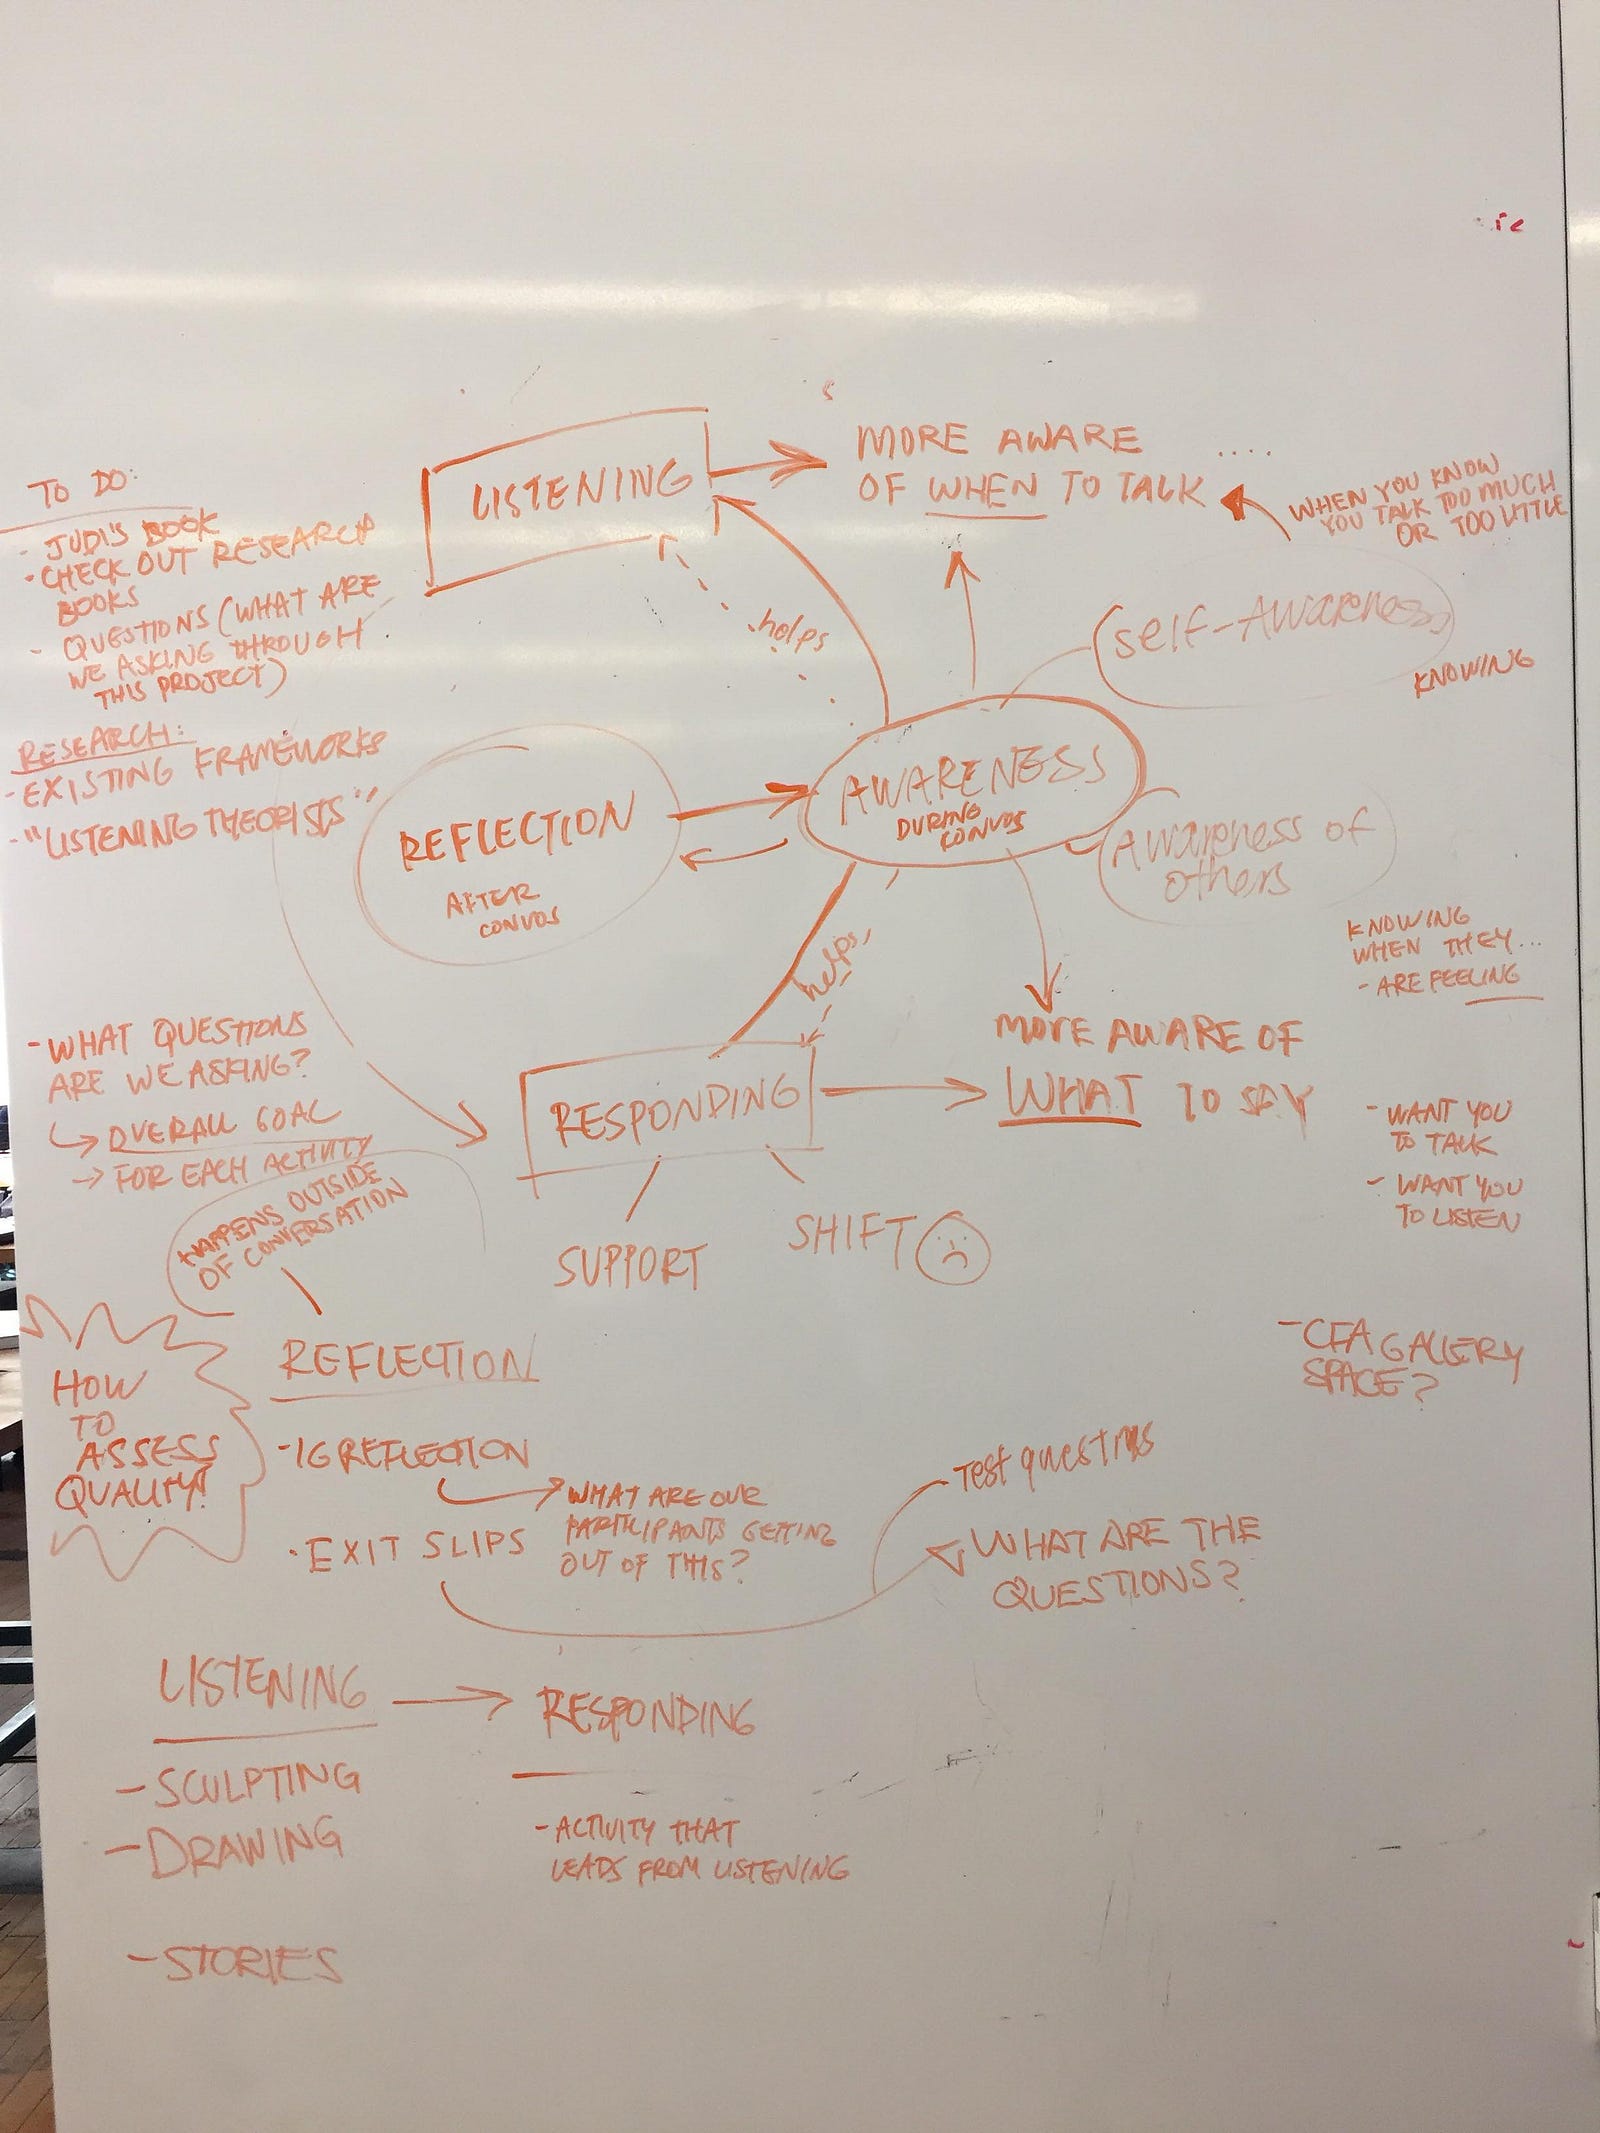 TO DO:
- JUDI'S BOOK
- CHECK OUT RESEARCH
BOOKS
- QUESTIONS (WHAT ARE
WE ASKING THROUGH
THIS PROJECT)
RESEARCH:
- EXISTING FRAMEWORKS
- "LISTENING THEORISTS"
LISTENING
MORE AWARE
OF WHEN TO TALK ....
WHEN YOU KNOW
YOU TALK TOO MUCH
OR TOO LITTLE
helps
self-Awareness
KNOWING
REFLECTION
AFTER
CONVOS
AWARENESS
DURING
CONVOS
Awareness of
others
KNOWING
WHEN THEY...
- ARE FEELING
- WANT YOU
TO TALK
- WANT YOU
TO LISTEN
helps
MORE AWARE OF
WHAT TO SAY
RESPONDING
SUPPORT
SHIFT
- WHAT QUESTIONS
ARE WE ASKING?
→ OVERALL GOAL
→ FOR EACH ACTIVITY
HAPPENS OUTSIDE
OF CONVERSATION
HOW
TO
ASSESS
QUALITY?
REFLECTION
- IG REFLECTION
WHAT ARE OUR
PARTICIPANTS GETTING
OUT OF THIS?
· EXIT SLIPS
Test questions
WHAT ARE THE
QUESTIONS?
- CFA GALLERY
SPACE?
LISTENING → RESPONDING
- SCULPTING
- DRAWING
- STORIES
- ACTIVITY THAT
LEADS FROM LISTENING